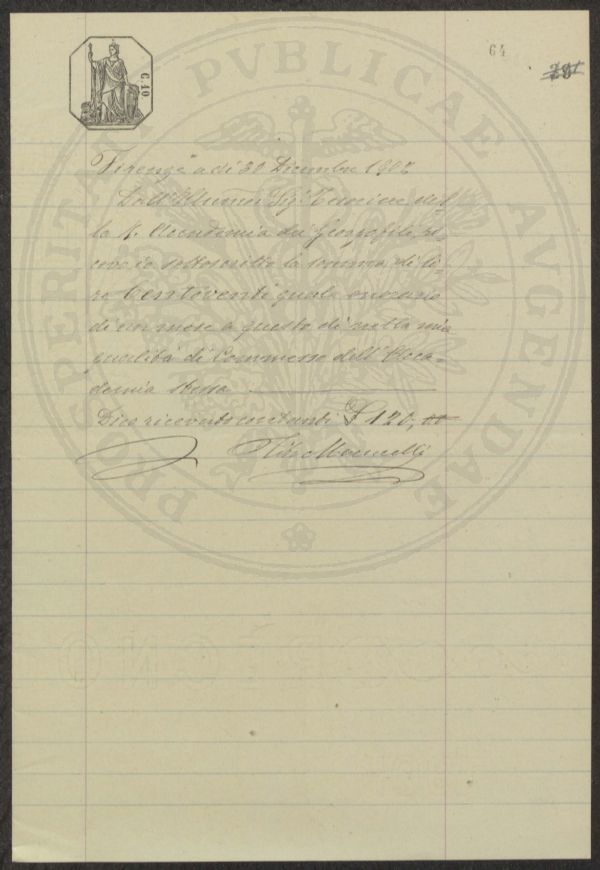 64
C. 10
PROSPERITATI PVBLICAE AVGENDAE
Firenze a dì 30 Dicembre 1902
Dall' Illumo Sigr Tesoriere del
la R. Accademia dei Georgofili, ri-
cevo io sottoscritto la somma di li-
re Centoventi quale onorario
di un mese a questo dì nella mia
qualità di Commesso dell' Acca-
demia stessa
Dico ricevuto contanti £ 120,00